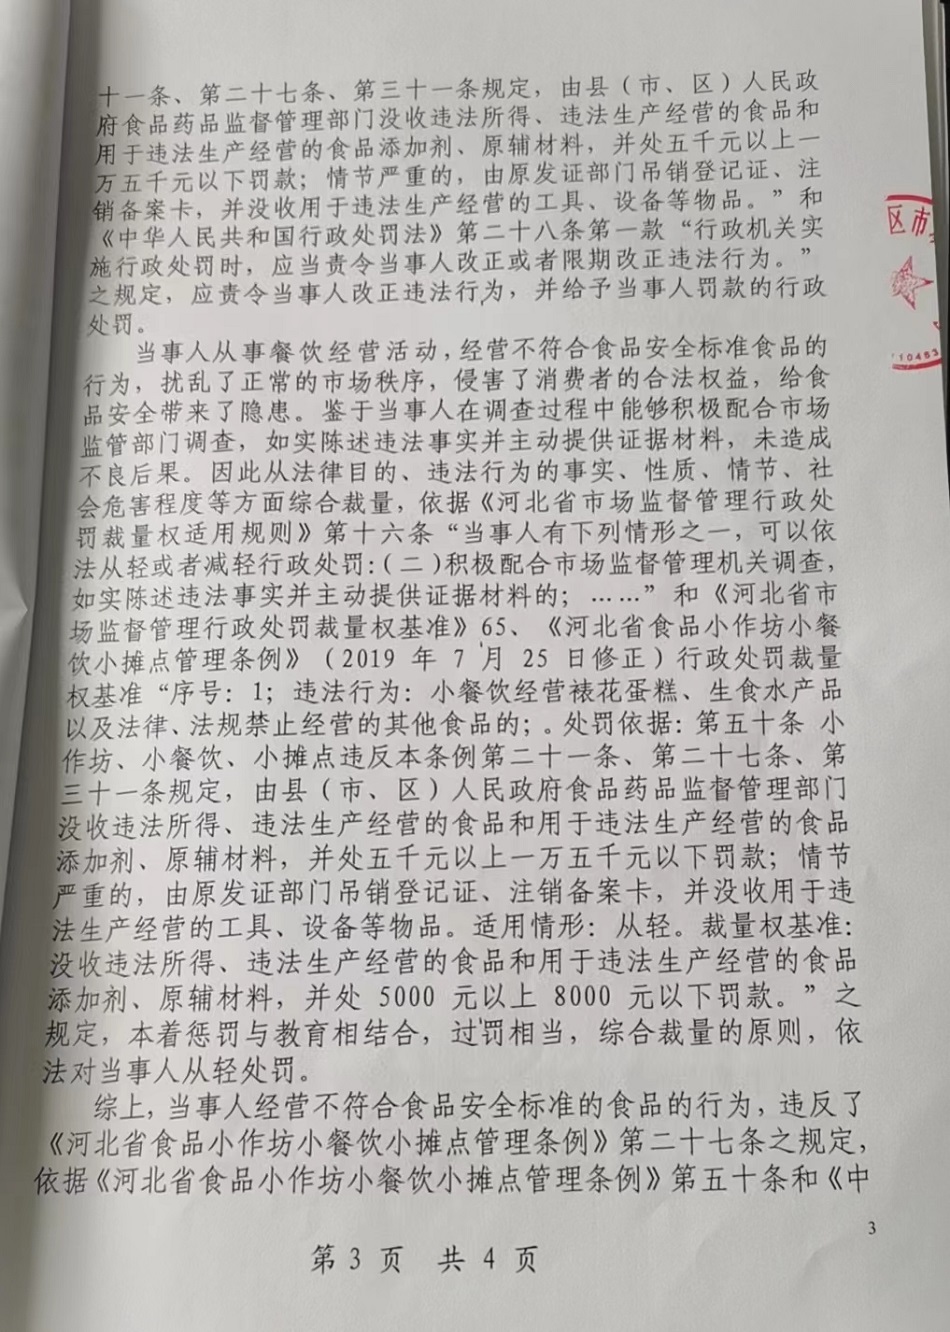 十一条、第二十七条、第三十一条规定，由县（市、区）人民政
府食品药品监督管理部门没收违法所得、违法生产经营的食品和
用于违法生产经营的食品添加剂、原辅材料，并处五千元以上一
万五千元以下罚款；情节严重的，由原发证部门吊销登记证、注
销备案卡，并没收用于违法生产经营的工具、设备等物品。”和
《中华人民共和国行政处罚法》第二十八条第一款“行政机关实
施行政处罚时，应当责令当事人改正或者限期改正违法行为。”
之规定，应责令当事人改正违法行为，并给予当事人罚款的行政
处罚。
当事人从事餐饮经营活动，经营不符合食品安全标准食品的
行为，扰乱了正常的市场秩序，侵害了消费者的合法权益，给食
品安全带来了隐患。鉴于当事人在调查过程中能够积极配合市场
监管部门调查，如实陈述违法事实并主动提供证据材料，未造成
不良后果。因此从法律目的、违法行为的事实、性质、情节、社
会危害程度等方面综合裁量，依据《河北省市场监督管理行政处
罚裁量权适用规则》第十六条“当事人有下列情形之一，可以依
法从轻或者减轻行政处罚：（二）积极配合市场监督管理机关调查，
如实陈述违法事实并主动提供证据材料的；……”和《河北省市
场监督管理行政处罚裁量权基准》65、《河北省食品小作坊小餐
饮小摊点管理条例》（2019 年 7 月 25 日修正）行政处罚裁量
权基准“序号：1；违法行为：小餐饮经营裱花蛋糕、生食水产品
以及法律、法规禁止经营的其他食品的；。处罚依据：第五十条 小
作坊、小餐饮、小摊点违反本条例第二十一条、第二十七条、第
三十一条规定，由县（市、区）人民政府食品药品监督管理部门
没收违法所得、违法生产经营的食品和用于违法生产经营的食品
添加剂、原辅材料，并处五千元以上一万五千元以下罚款；情节
严重的，由原发证部门吊销登记证、注销备案卡，并没收用于违
法生产经营的工具、设备等物品。适用情形：从轻。裁量权基准：
没收违法所得、违法生产经营的食品和用于违法生产经营的食品
添加剂、原辅材料，并处 5000 元以上 8000 元以下罚款。”之
规定，本着惩罚与教育相结合，过罚相当，综合裁量的原则，依
法对当事人从轻处罚。
综上，当事人经营不符合食品安全标准的食品的行为，违反了
《河北省食品小作坊小餐饮小摊点管理条例》第二十七条之规定，
依据《河北省食品小作坊小餐饮小摊点管理条例》第五十条和《中
3
第 3 页 共 4 页
区市
110463